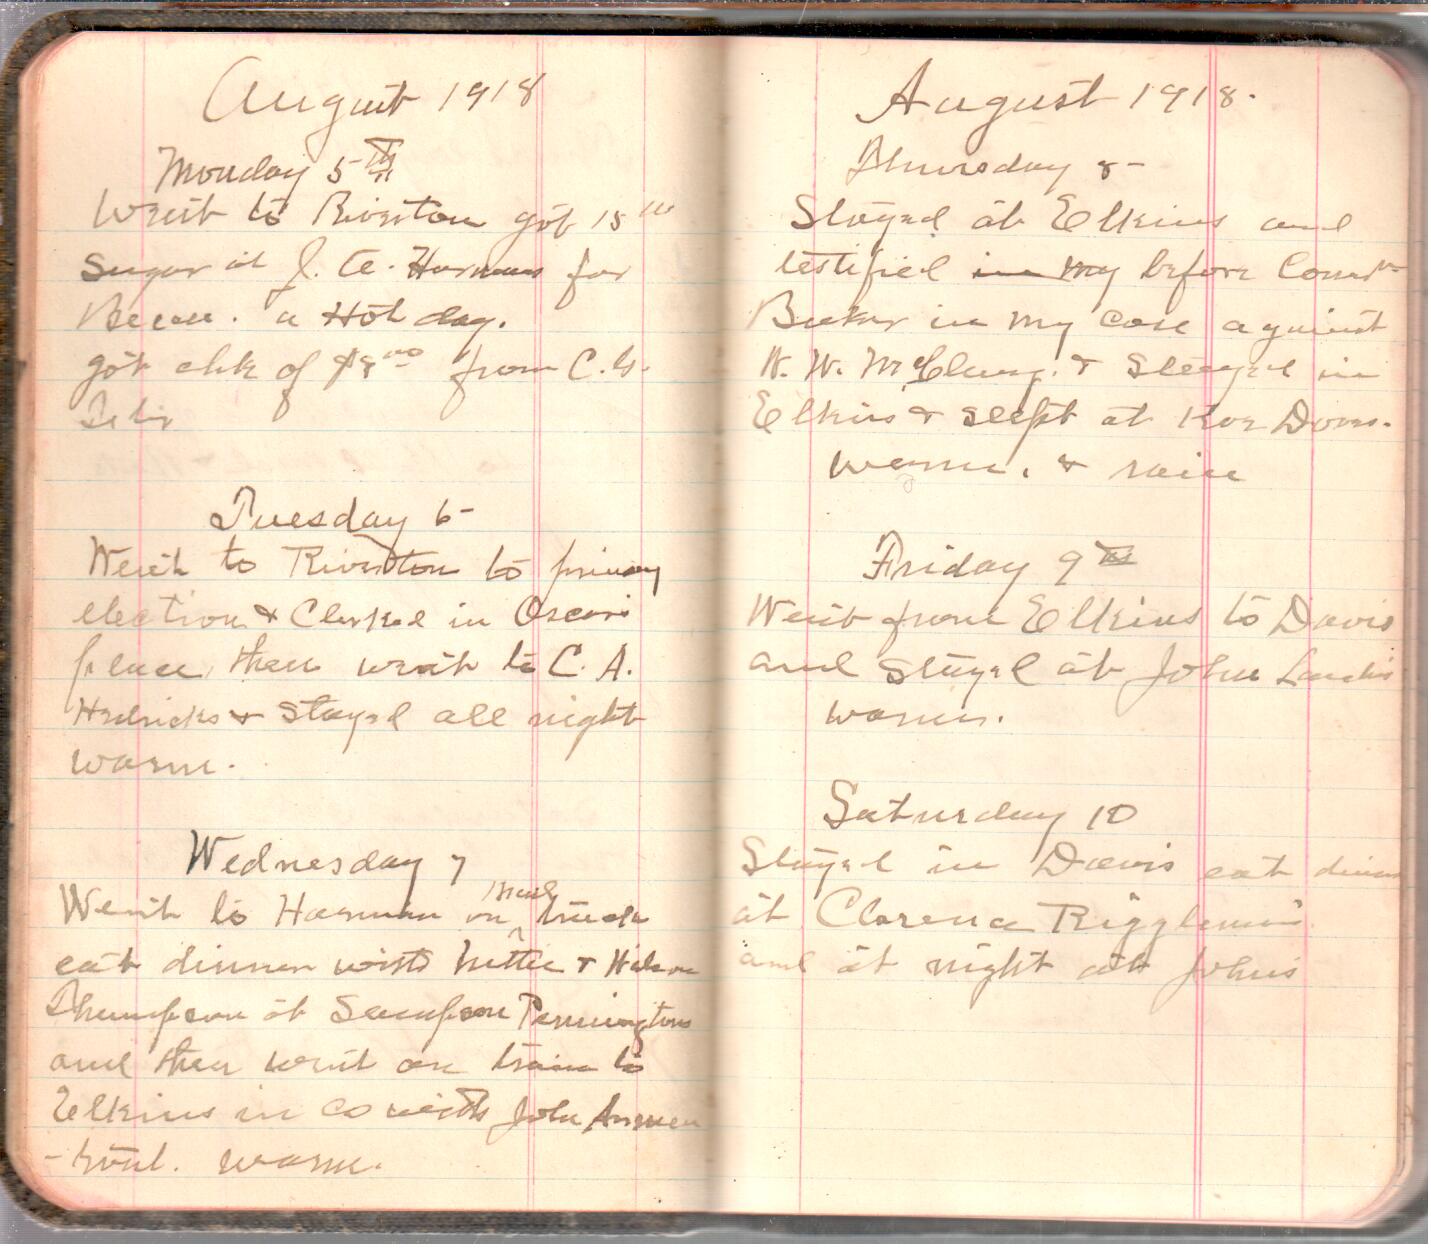 August 1918
Monday 5th
Went to Riverton got 15 lbs
Sugar at J. A. Harmans for
a Hot day.
got chk of $8.00 from C. G.
Tuesday 6-
Went to Riverton to primary
election & Clerked in Oscars
place, then went to C. A.
Hedricks & stayed all night
warm.
Wednesday 7
Went to Harman on mail truck
eat dinner with Nettie & Wilson
Thompson at Sampson Penningtons
and then went on train to
Elkins in co with John Armen
-trout. warm.
August 1918.
Thursday 8-
Stayed at Elkins and
testified in my before Comr
Baker in my case against
H. W. McClung. & Stayed in
Elkins & slept at Doves.
warm. & rain
Friday 9th
Went from Elkins to Davis
and stayed at John Landis
warm.
Saturday 10
Stayed in Davis eat dinner
at Clarence Rigglemans
and at night at Johns